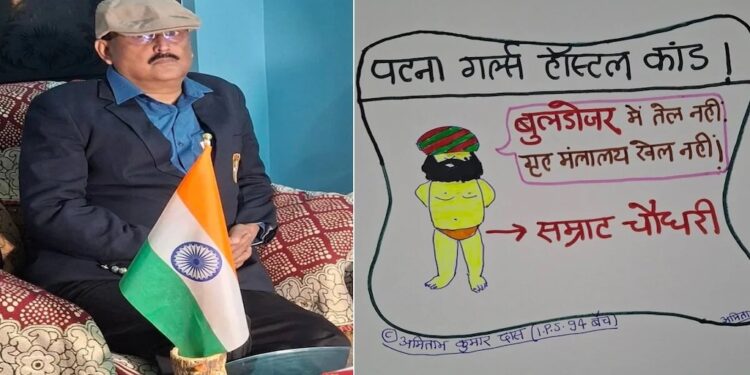 पटना गर्ल्स हॉस्टल कांड !
बुलडोजर में तेल नहीं
गृह मंत्रालय खेल नहीं !
→ सम्राट चौधरी
© अमिताभ कुमार दास (I.P.S. 94 बैच)
अमिताभ